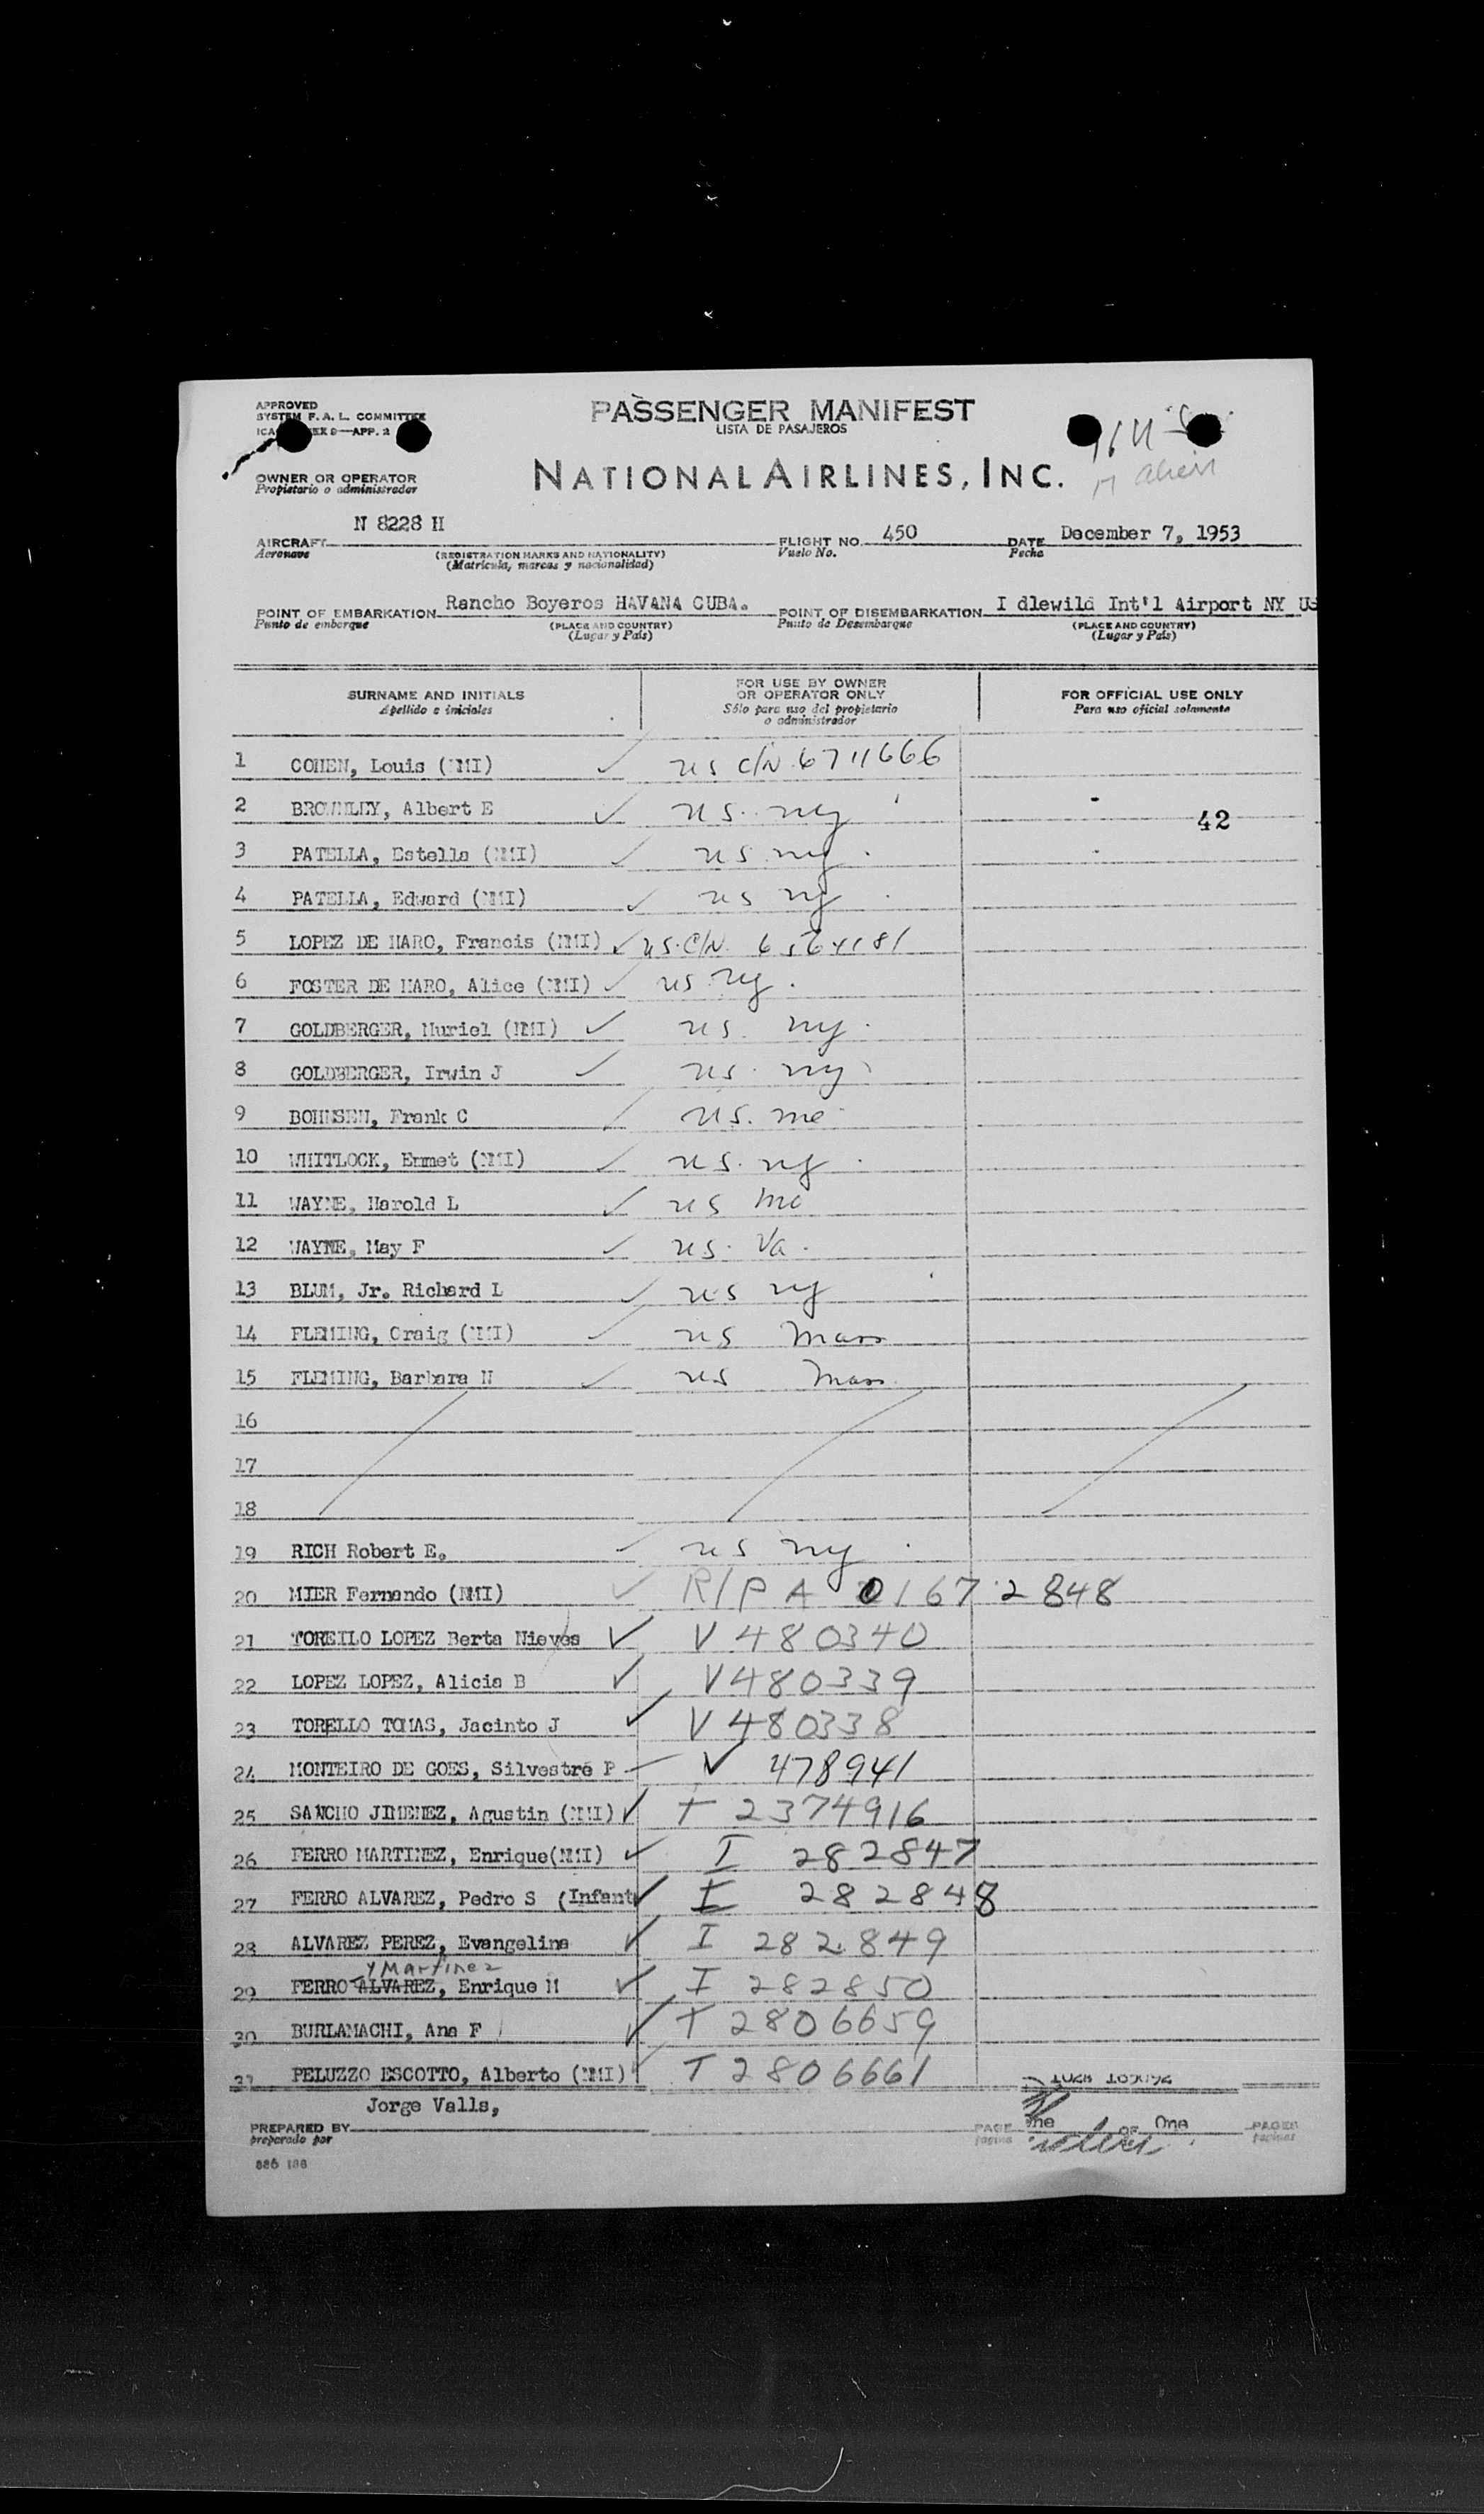 APPROVED
SYSTEM F. A. L. COMMITTEE
APP. 2
PASSENGER MANIFEST
LISTA DE PASAJEROS
OWNER OR OPERATOR
Propietario o administrador
NATIONAL AIRLINES, INC.
alien
N 8228 H
450
December 7, 1953
AIRCRAFT
Aeronave
(REGISTRATION MARKS AND NATIONALITY)
(Matricula, marcas y nacionalidad)
FLIGHT NO.
Vuelo No.
DATE
Fecha
POINT OF EMBARKATION Rancho Boyeros HAVANA CUBA.
Punto de embarque
(PLACE AND COUNTRY)
(Lugar y País)
POINT OF DISEMBARKATION I dlewild Int'l Airport NY US
Punto de Desembarque
(PLACE AND COUNTRY)
(Lugar y País)
SURNAME AND INITIALS
Apellido e iniciales
FOR USE BY OWNER
OR OPERATOR ONLY
Sólo para uso del propietario
o administrador
FOR OFFICIAL USE ONLY
Para uso oficial solamente
1 COHEN, Louis (NMI) ✓ US C/N 6711666
2 BROWNLEY, Albert E ✓ US. NY
42
3 PATELLA, Estella (NMI) ✓ US NY.
4 PATELLA, Edward (NMI) ✓ US NY
5 LOPEZ DE HARO, Francis (NMI) ✓ US. C/N
6 FOSTER DE HARO, Alice (NMI) ✓ US NY.
7 GOLDBERGER, Muriel (NMI) ✓ US. NY.
8 GOLDBERGER, Irwin J ✓ US. NY
9 BOHNSEN, Frank C ✓ US. me
10 WHITLOCK, Emmet (NMI) ✓ US. NY.
11 WAYNE, Harold L ✓ US Mo
12 WAYNE, May F ✓ US. Va.
13 BLUM, Jr. Richard L ✓ US NY
14 FLEMING, Craig (NMI) ✓ US Mass
15 FLEMING, Barbara N ✓ US Mass
16
17
18
19 RICH Robert E. ✓ US NY.
20 MIER Fernando (NMI) ✓ R/P A 01672848
21 TORELLO LOPEZ Berta Nieves ✓ V 480340
22 LOPEZ LOPEZ, Alicia B ✓ V 480339
23 TORELLO TOMAS, Jacinto J ✓ V 480338
24 MONTEIRO DE GOES, Silvestre P V 478941
25 SANCHO JIMENEZ, Agustin (NMI) ✓ T 2374916
26 FERRO MARTINEZ, Enrique(NMI) ✓ I 282847
27 FERRO ALVAREZ, Pedro S (Infant ✓ I 282848
28 ALVAREZ PEREZ, Evangelina ✓ I 282849
y Martinez
29 FERRO ALVAREZ, Enrique M ✓ I 282850
30 BURLAMACHI, Ana F ✓ T 2806659
31 PELUZZO ESCOTTO, Alberto (NMI) ✓ T 2806661
Jorge Valls,
PREPARED BY
preparado por
PAGE
página
One OF One
PAGES
páginas
886 188